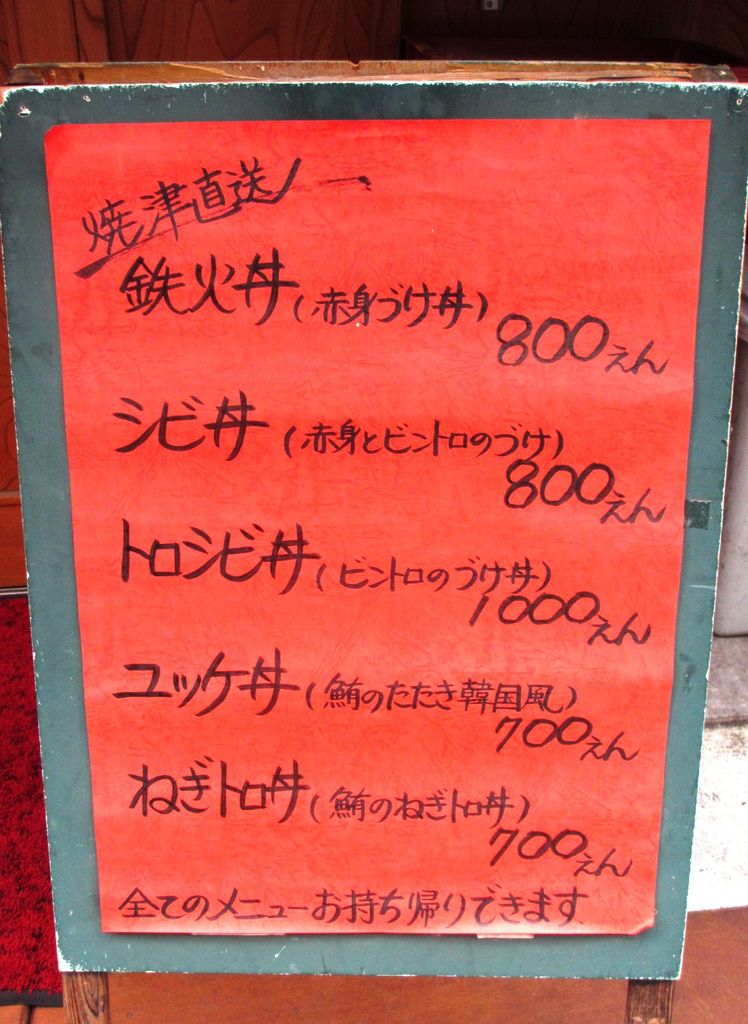 焼津直送
鉄火丼(赤身づけ丼)
800えん
シビ丼(赤身とビントロのづけ)
800えん
トロシビ丼(ビントロのづけ丼)
1000えん
ユッケ丼(鮪のたたき韓国風)
700えん
ねぎトロ丼(鮪のねぎトロ丼)
700えん
全てのメニューお持ち帰りできます